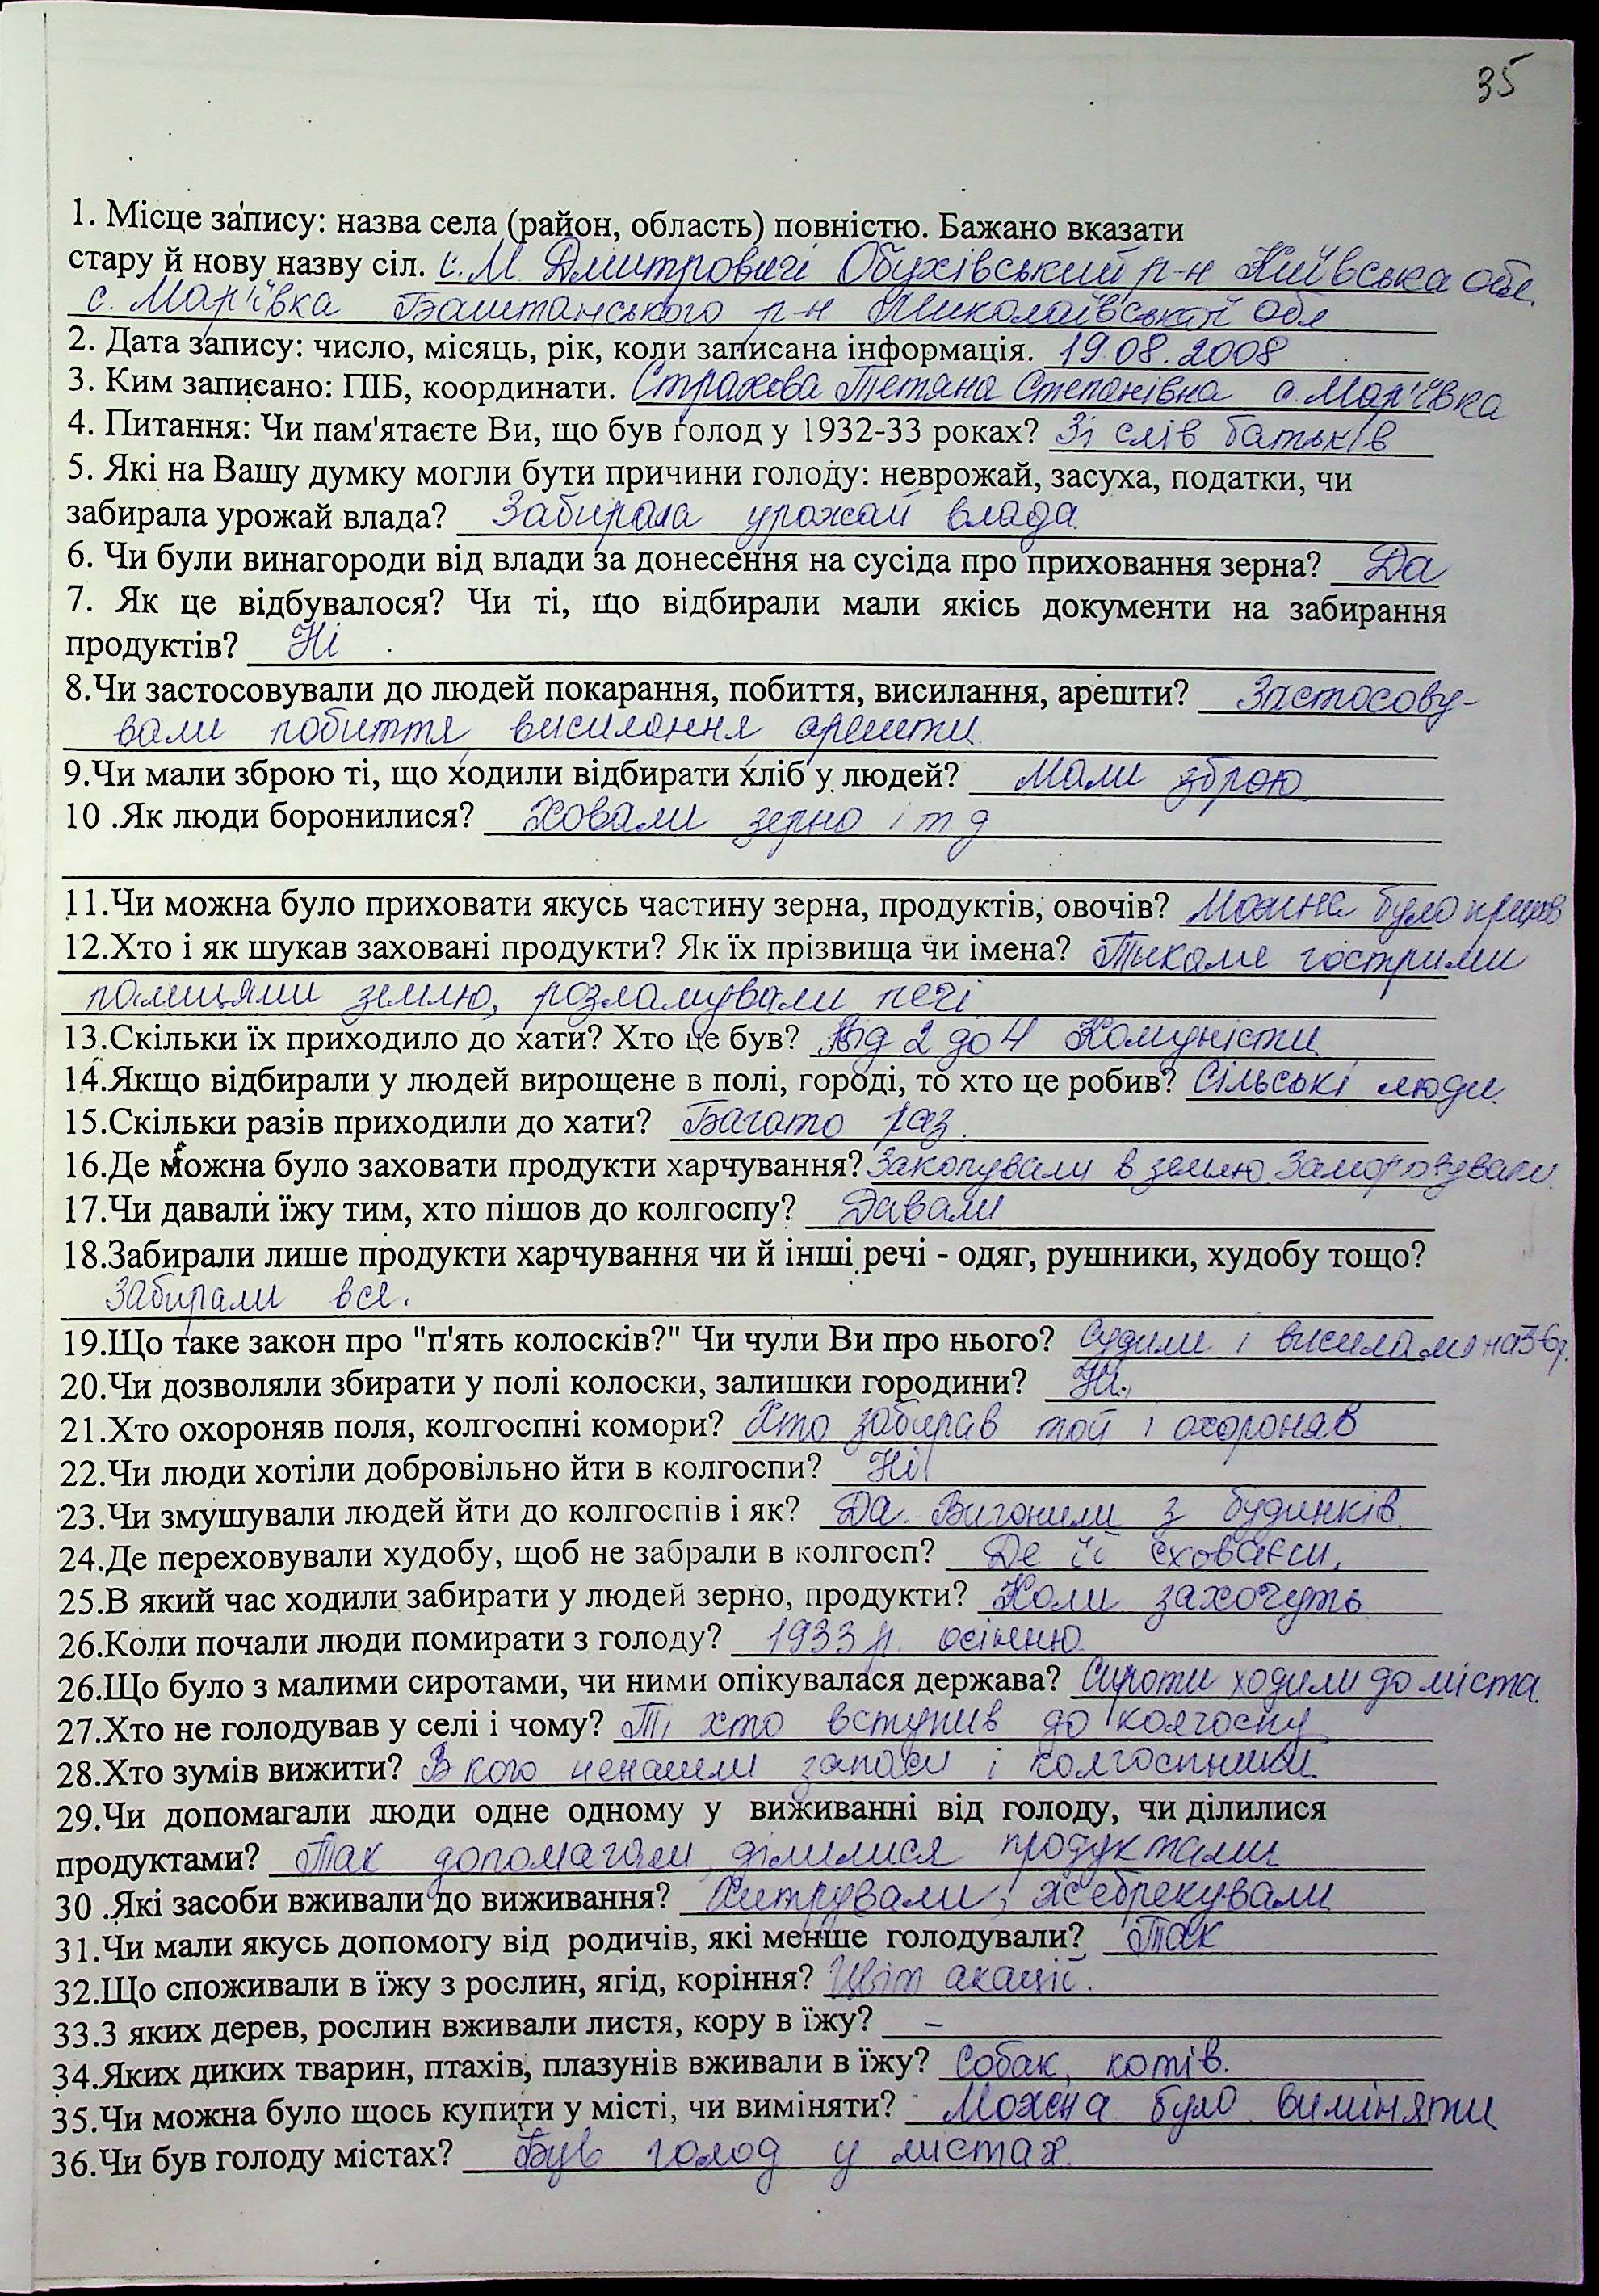 35
1. Місце запису: назва села (район, область) повністю. Бажано вказати
стару й нову назву сіл. с. М. Дмитровичі Обухівський р-н Київська обл.
с. Мар'ївка Баштанського р-н Миколаївської обл
2. Дата запису: число, місяць, рік, коли записана інформація. 19.08.2008
3. Ким записано: ПІБ, координати. Страхова Тетяна Степанівна с. Мар'ївка
4. Питання: Чи пам'ятаєте Ви, що був голод у 1932-33 роках? Зі слів батьків
5. Які на Вашу думку могли бути причини голоду: неврожай, засуха, податки, чи
забирала урожай влада? Забирала урожай влада
6. Чи були винагороди від влади за донесення на сусіда про приховання зерна? Да
7. Як це відбувалося? Чи ті, що відбирали мали якісь документи на забирання
продуктів? Ні
8.Чи застосовували до людей покарання, побиття, висилання, арешти? Застосову-
вали побиття, висилання, арешти.
9.Чи мали зброю ті, що ходили відбирати хліб у людей? Мали зброю.
10 .Як люди боронилися? Ховали зерно і т д
11.Чи можна було приховати якусь частину зерна, продуктів, овочів? Можна було прихов
12.Хто і як шукав заховані продукти? Як їх прізвища чи імена? Тикали гострими
палицями землю, розламували печі
13.Скільки їх приходило до хати? Хто це був? Від 2 до 4 Комуністи
14.Якщо відбирали у людей вирощене в полі, городі, то хто це робив? Сільські люди.
15.Скільки разів приходили до хати? Багато раз.
16.Де можна було заховати продукти харчування? Закопували в землю. Замуровували.
17.Чи давали їжу тим, хто пішов до колгоспу? Давали
18.Забирали лише продукти харчування чи й інші речі - одяг, рушники, худобу тощо?
Забирали все.
19.Що таке закон про "п'ять колосків?" Чи чули Ви про нього? Судили і висилали на
20.Чи дозволяли збирати у полі колоски, залишки городини? Ні.
21.Хто охороняв поля, колгоспні комори? Хто забирав той і охороняв
22.Чи люди хотіли добровільно йти в колгоспи? Ні
23.Чи змушували людей йти до колгоспів і як? Да. Вигонили з будинків.
24.Де переховували худобу, щоб не забрали в колгосп? Де її сховаєш.
25.В який час ходили забирати у людей зерно, продукти? Коли захочуть
26.Коли почали люди помирати з голоду? 1933 р. осінню
26.Що було з малими сиротами, чи ними опікувалася держава? Сироти ходили до міста.
27.Хто не голодував у селі і чому? Ті хто вступив до колгоспу
28.Хто зумів вижити? В кого ненашли запаси і колгоспники.
29.Чи допомагали люди одне одному у виживанні від голоду, чи ділилися
продуктами? Так допомагали, ділилися продуктами
30 .Які засоби вживали до виживання? Хитрували, жебрекували
31.Чи мали якусь допомогу від родичів, які менше голодували? Так
32.Що споживали в їжу з рослин, ягід, коріння? Цвіт акації.
33.З яких дерев, рослин вживали листя, кору в їжу? –
34.Яких диких тварин, птахів, плазунів вживали в їжу? Собак, котів.
35.Чи можна було щось купити у місті, чи виміняти? Можна було виміняти
36.Чи був голоду містах? Був голод у містах.